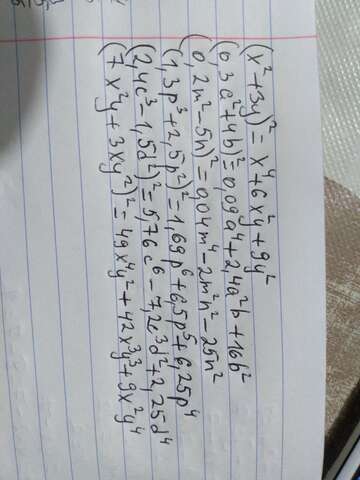 (x²+3y)²= x⁴+6x²y+9y²
(03c²+4b)²=0,09a⁴+2,4a²b+16b²
(0,2m²-5n)²=0,04m⁴-2m²n²-25n²
(1,3p³+2,5p²)²=1,69p⁶+6,5p⁵+6,25p⁴
(2,4c³-1,5d²)²=5,76c⁶-7,2c³d²+2,25d⁴
(7x²y+3xy²)²=49x⁴y²+42x³y³+9x²y⁴